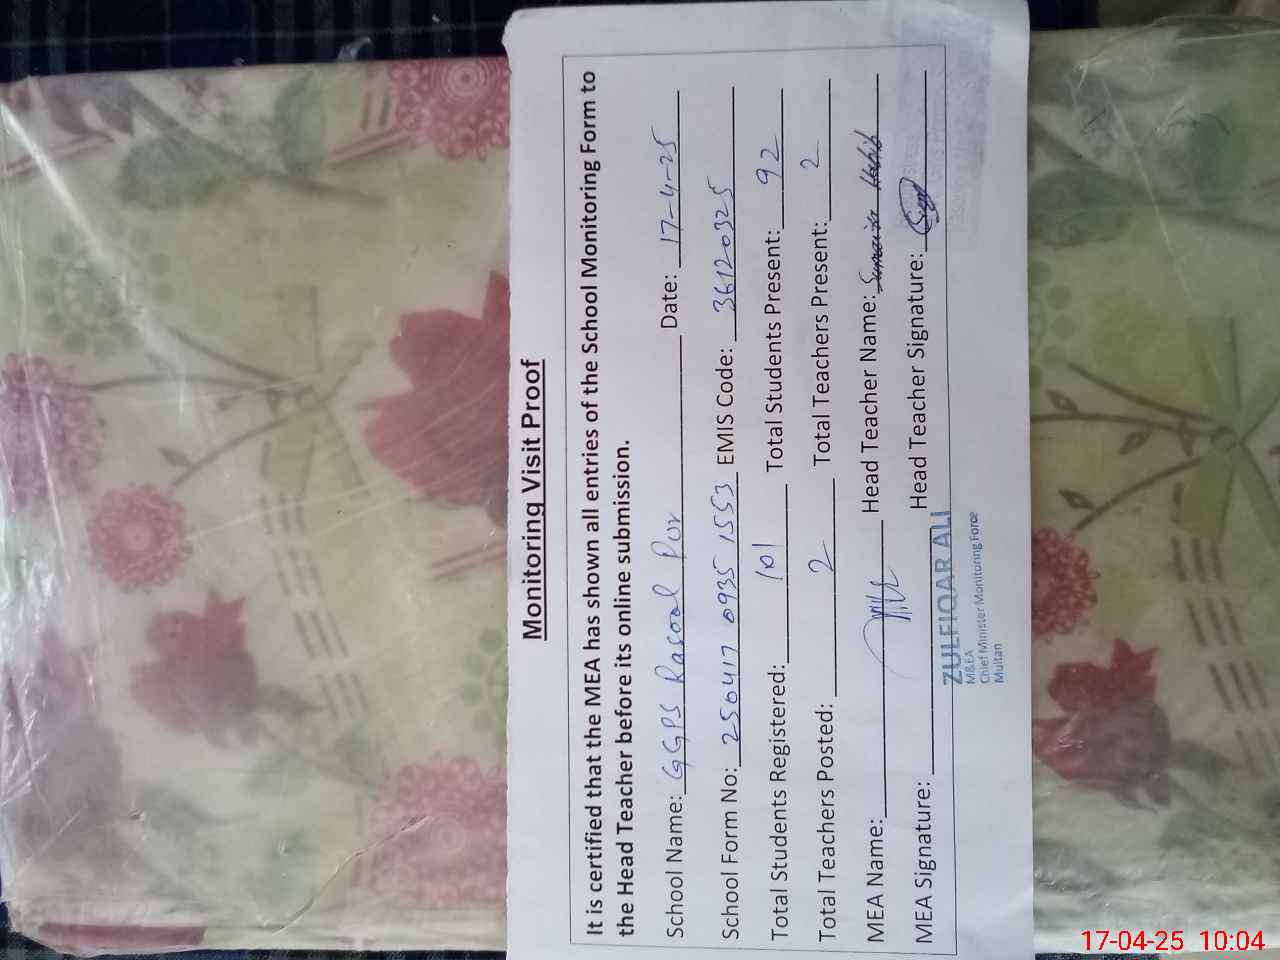 Monitoring Visit Proof
It is certified that the MEA has shown all entries of the School Monitoring Form to
the Head Teacher before its online submission.
School Name: GGPS Rasool Pur Date: 17-4-25
School Form No: 250417 0935 1553 EMIS Code: 36120325
Total Students Registered: 101 Total Students Present: 92
Total Teachers Posted: 2 Total Teachers Present: 2
MEA Name: Head Teacher Name: Sumaira Habib
MEA Signature: Head Teacher Signature:
ZULFIQAR ALI
M&EA
Chief Minister Monitoring Force
Multan
17-04-25 10:04